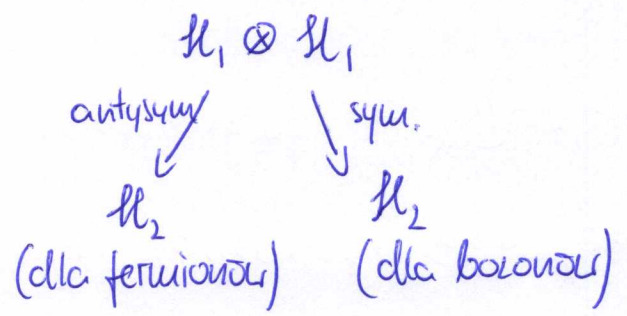 ℋ₁ ⊗ ℋ₁
antysym sym.
ℋ₂ ℋ₂
(dla fermionów) (dla bozonów)